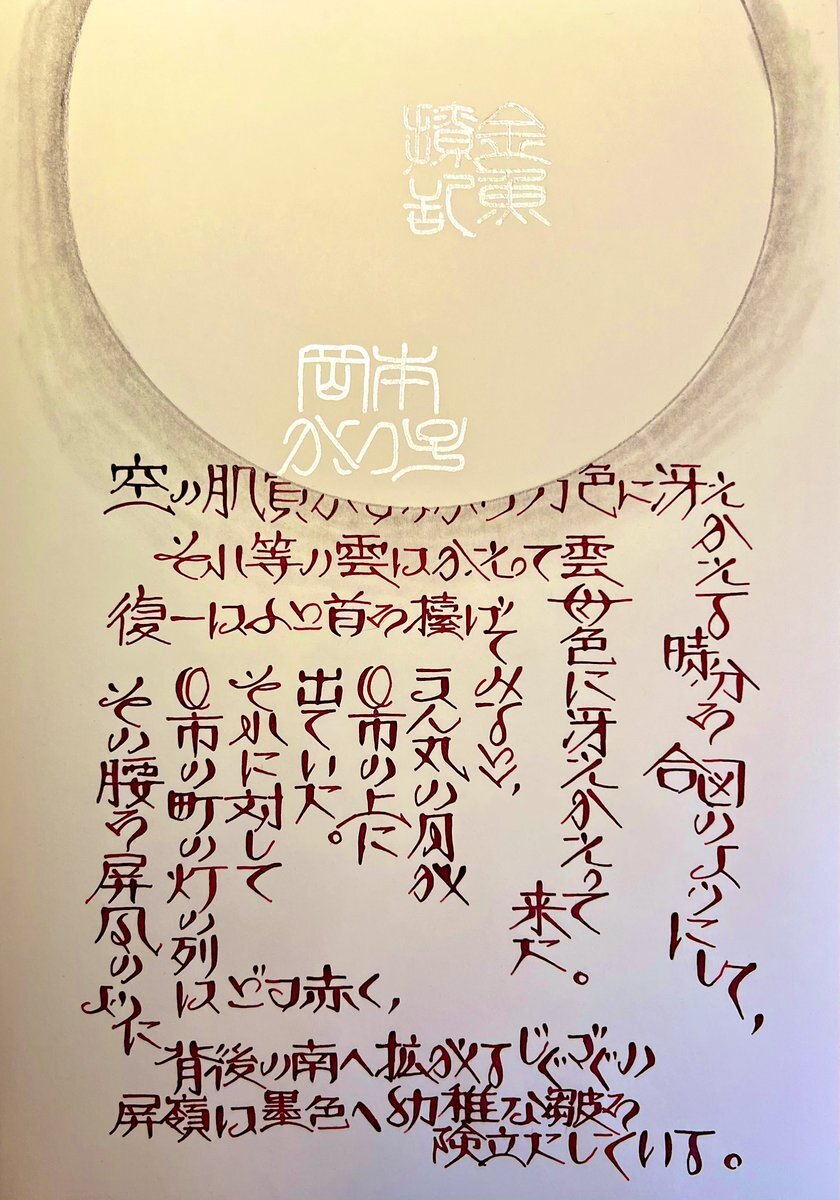 金魚
撩乱
岡本
かの子
空の肌質がすっかり刀色に冴え
かえる
時分を
合図のようにして、
それ等の雲はかえって雲
母色に冴えかえって
来た。
復一はふと首を擡げて
みると、
まん丸の月が
O市の上に
出ていた。
それに対して
O市の町の灯の列
はどす赤く、
その腰を屏風のように
背後の南へ拡がるじぐざぐの
屏嶺は墨色へ幼稚な皺を
険立たしている。